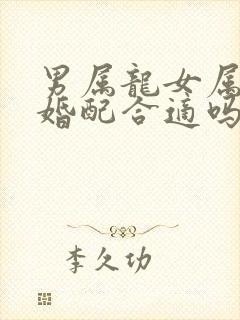 男属龍女属
婚配合適吗
李久功